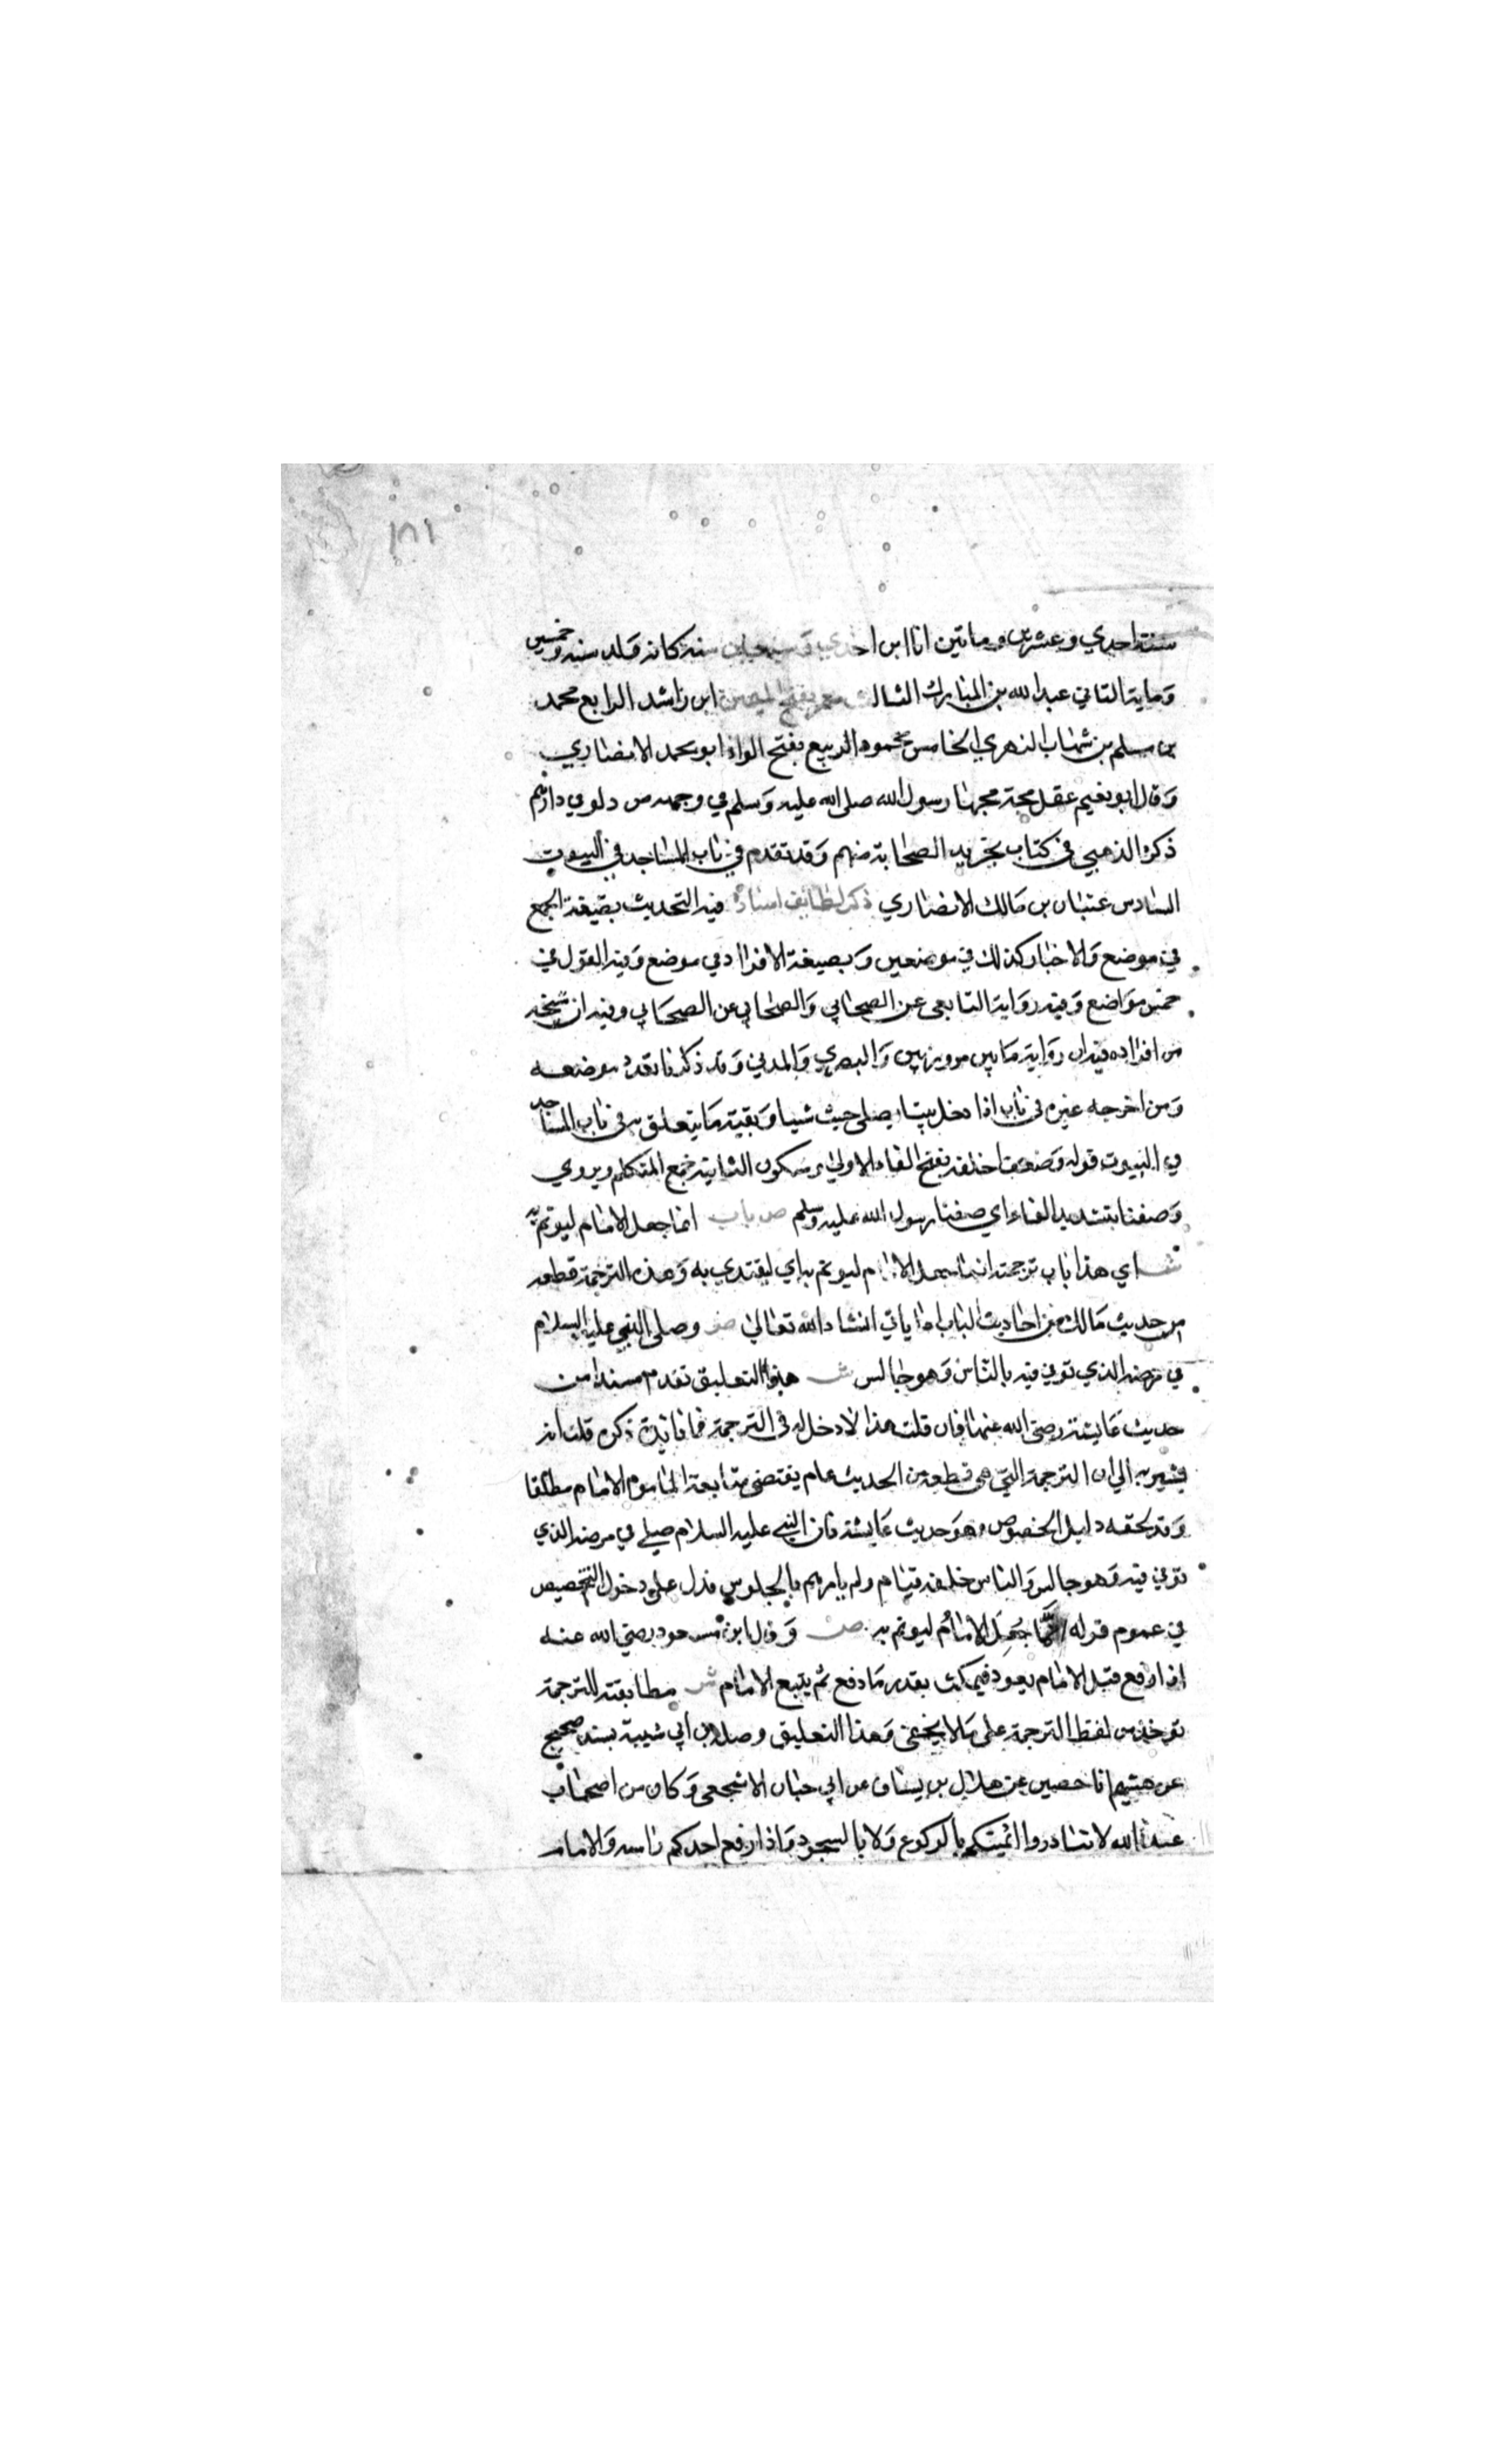 ١٨١
سنة احدي وعشرين وماتين انا ابن احدي وسبعين سنة كانه ولد سنة وخمسين
وماية الثاني عبد الله بن المبارك الثالث معمر بفتح الميمين ابن راشد الرابع محمد
بن مسلم بن شهاب الزهري الخامس محمود الربيع بفتح الراء ابو محمد الانصاري
وقال ابو نعيم عقل مجة مجها رسول الله صلى الله عليه وسلم في وجهه من دلو في دارهم
ذكره الذهبي في كتاب تجريد الصحابة منهم وقد تقدم في باب المساجد في البيوت
السادس عتبان بن مالك الانصاري ذكر لطائف اسناده فيه التحديث بصيغة الجمع
في موضع والاخبار كذلك في موضعين وبصيغة الافراد في موضع وفيه القول في
خمس مواضع وفيه رواية التابعي عن الصحابي والصحابي عن الصحابي وفيه ان شيخه
من افراده فيه ان رواية ما بين مروزيين والبصري والمدني وقد ذكرنا تعدد موضعه
ومن اخرجه غيره في باب اذا دخل بيتا يصلي حيث شيا وبقية ما يتعلق به في باب المساجد
في البيوت قوله وصففنا خلفه بفتح الفاء الاولي وسكون الثانية جمع المتكلم ويروي
وصفنا بتشديد الفاء اي صفنا رسول الله عليه وسلم ص باب انما جعل الامام ليوتم به
ش اي هذا باب ترجمته انما جعل الامام ليوتم به اي ليقتدي به وهذه الترجمة قطعه
من حديث مالك من احاديث الباب اما ياتي انشاء الله تعالي ص وصلى النبي عليه السلام
في مرضه الذي توفي فيه بالناس وهو جالس ش هذا التعليق تقدم مسندا من
حديث عايشة رضي الله عنها فان قلت هذا لا دخل له في الترجمة فما فائدة ذكره قلت انه
يشير به الي ان الترجمة التي هي قطعة من الحديث عام يقتضي متابعة الماموم الامام مطلقا
وقد لحقه دليل الخصوص وهو حديث عايشة فان النبي عليه السلام صلي في مرضه الذي
توفي فيه وهو جالس والناس خلفه قيام ولم يامرهم بالجلوس فدل على دخول التخصيص
في عموم قوله انما جعل الامام ليوتم به ص وقال ابن مسعود رضي الله عنه
اذا رفع قبل الامام يعود فيمكث بقدر ما رفع ثم يتبع الامام ش مطابقته للترجمة
توخذ من لفظ الترجمة على ما لا يخفى وهذا التعليق وصله ابن ابي شيبة بسند صحيح
عن هشيم انا حصين عن هلال بن يساف عن ابي حيان الاشجعي وكان من اصحاب
عبد الله لا تبادروا ائمتكم بالركوع ولا بالسجود واذا رفع احدكم راسه والامام